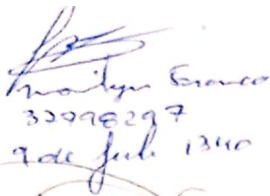 Marilyn Franco
32998297
9 de Julio 1340